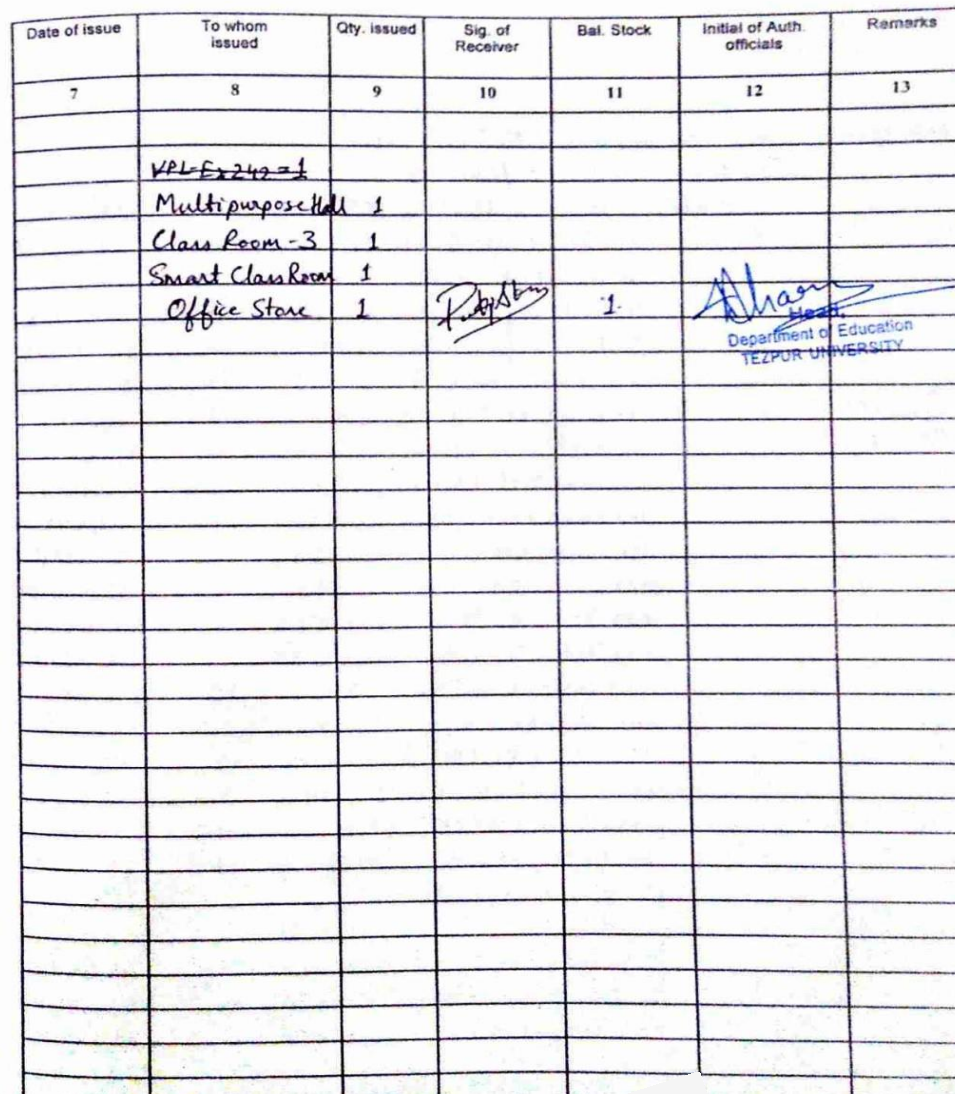 Date of issue To whom issued Qty. issued Sig. of Receiver Bal. Stock Initial of Auth. officials Remarks
7 8 9 10 11 12 13
VPL-Ex242=1
Multipurpose Hall 1
Class Room-3 1
Smart Class Room 1
Office Store 1 1
Head,
Department of Education
TEZPUR UNIVERSITY